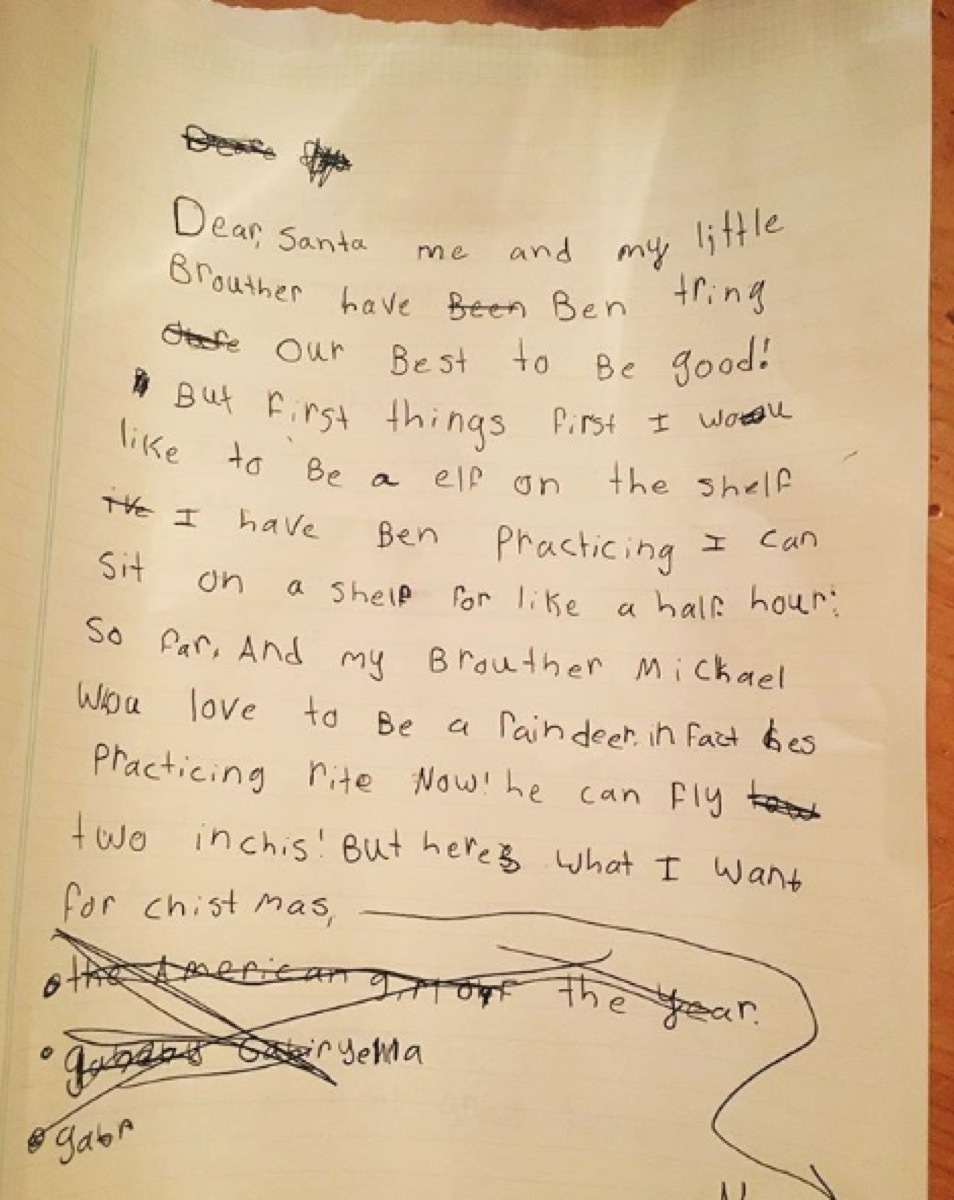 Dear, Santa me and my little
Brouther have Been Ben tring
our Best to Be good!
But first things first I wou
like to Be a elf on the shelf
I've I have Ben Practicing I can
Sit on a shelf for like a half hour:
So far, And my Brouther Michael
Wou love to Be a raindeer. in fact hes
Practicing rite Now! he can fly
two inchis! But here's what I want
for chist mas,
• the American girl of the year.
• Gabiryella
• gabr